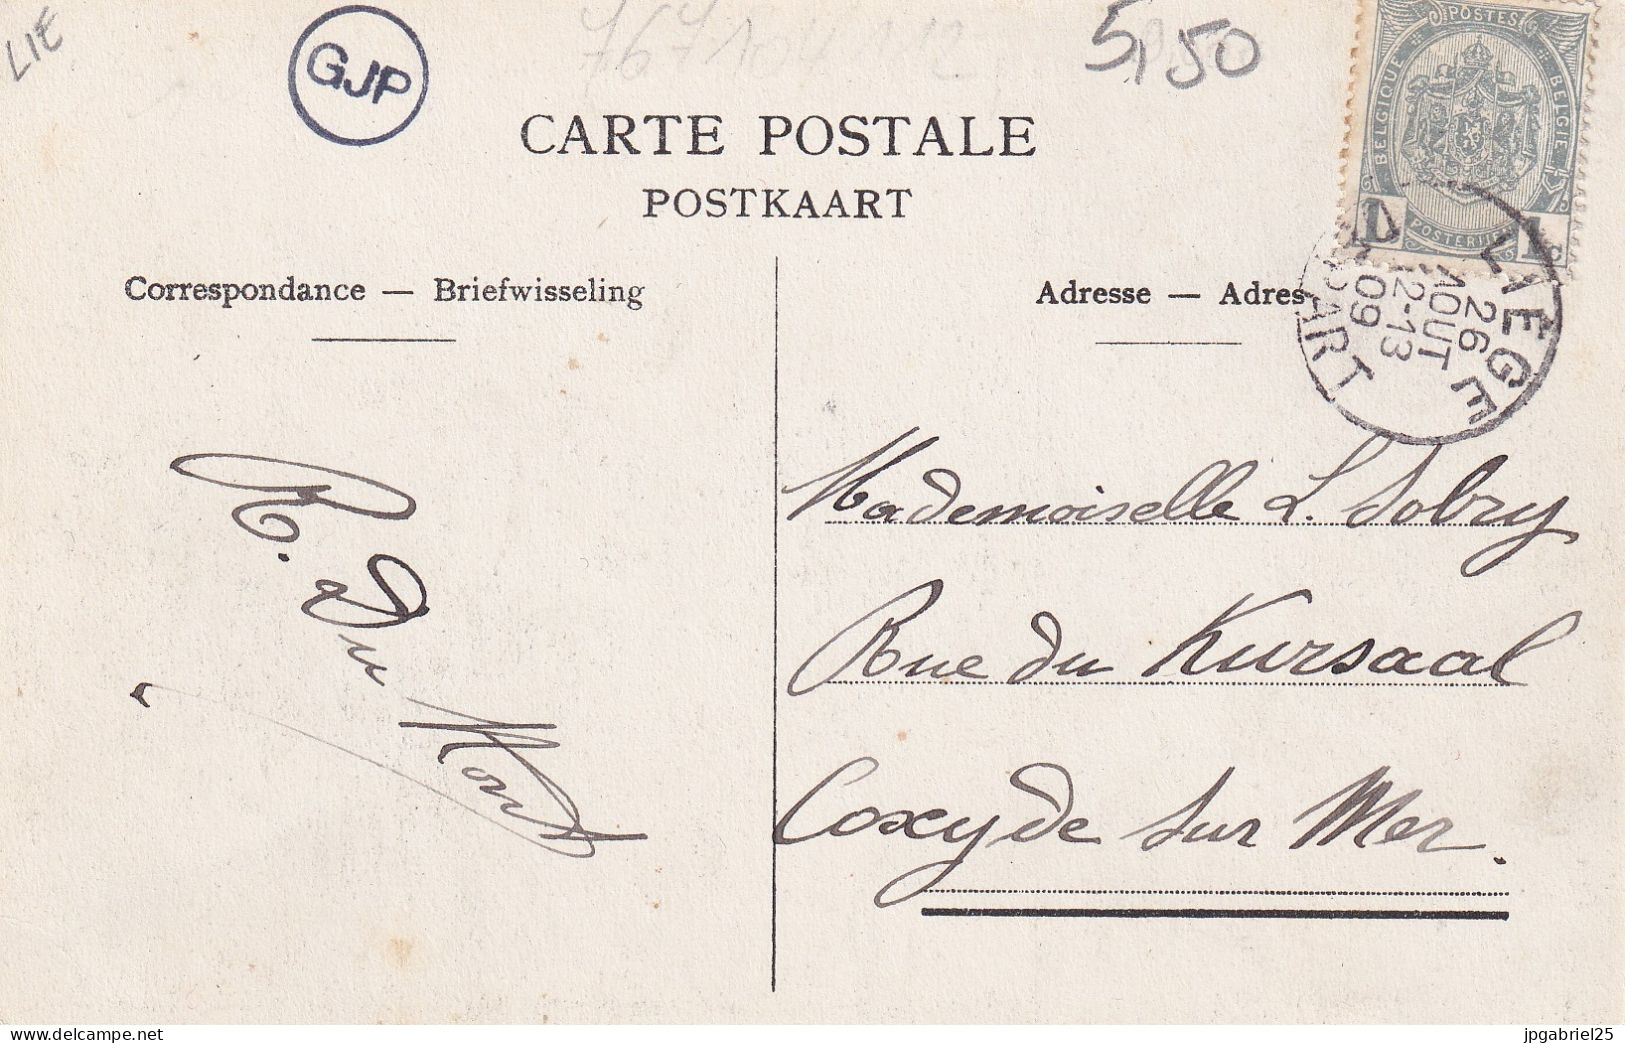 LIE
GJP
5,50
CARTE POSTALE
POSTKAART
POSTES
BELGIQUE
BELGIE
POSTERIJEN
1 1c
Correspondance — Briefwisseling
Adresse — Adres
LIEGE
26
AOUT
12-13
09
DEPART
Mademoiselle L. Sobry
Rue du Kursaal
Coxyde sur Mer.
delcampe.net
jpgabriel25